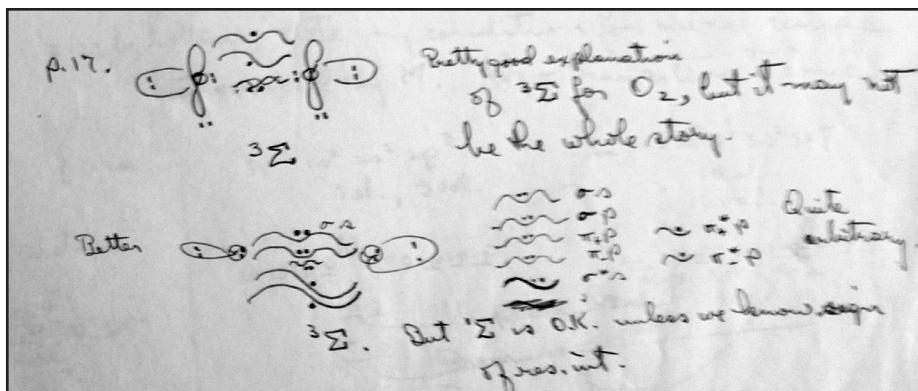 p. 17.
Pretty good explanation
of ³Σ for O₂, but it may not
be the whole story.
³Σ
Better
σs
σs
σp
π₊p π₊*p
π₋p π₋*p
σ*s
Quite
arbitrary
³Σ. But ¹Σ is O.K. unless we know sign
of res. int.